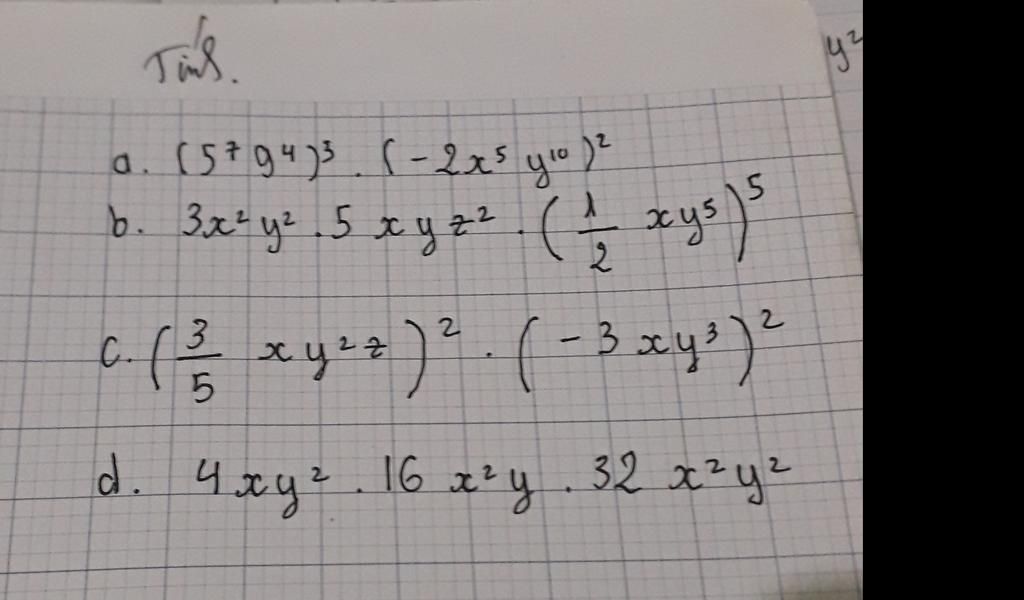 Tính.
y²
a. (5⁷ 9⁴)³ . (-2x⁵ y¹⁰)²
b. 3x² y² . 5 x y z² . (1/2 xy⁵)⁵
c. (3/5 xy² z)² . (-3 xy³)²
d. 4xy² . 16 x² y . 32 x² y²